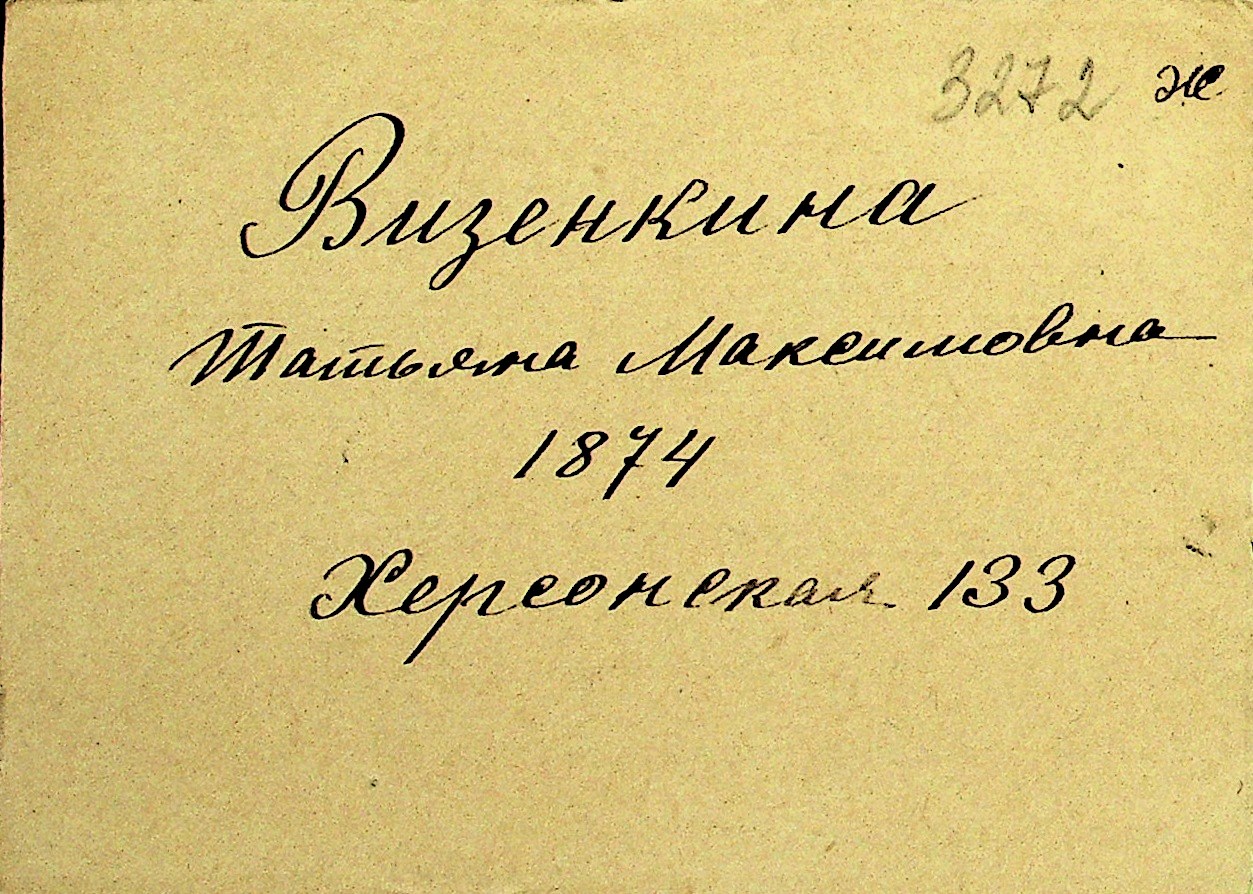 3272 ж
Визенкина
Татьяна Максимовна
1874
Херсонская 133